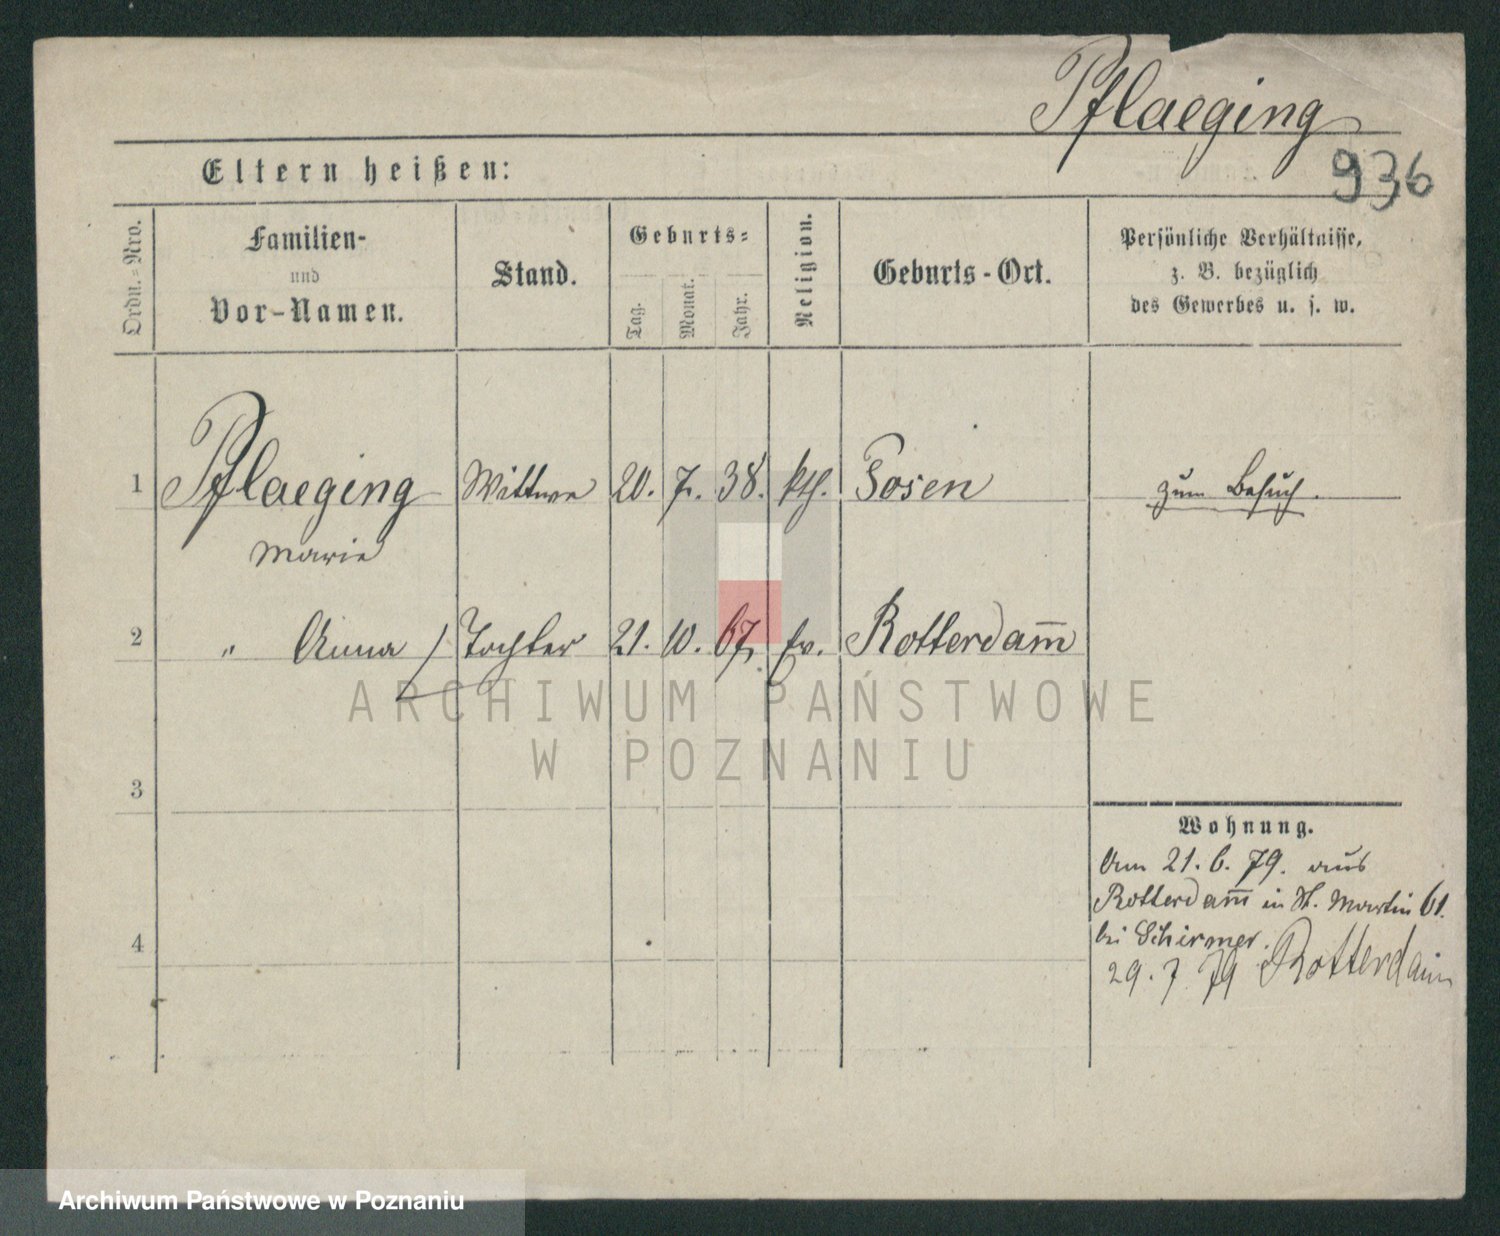 Pflaeging
936
Eltern heißen:
Ordn.=Nro.
Familien-
und
Vor-Namen.
Stand.
Geburts=
Tag.
Monat.
Jahr.
Religion.
Geburts-Ort.
Persönliche Verhältnisse,
z. B. bezüglich
des Gewerbes u. s. w.
1 Pflaeging Wittwe 20. 7. 38. kth. Posen zum Besuch.
Marie
2 " Anna / Tochter 21. 10. 67. Ev. Rotterdam̅
ARCHIWUM PAŃSTWOWE
W POZNANIU
3
Wohnung.
Am 21. 6. 79. aus
Rotterdam̅ in St. Martin 61.
bei Schirmer.
4
29. 7 79 Rotterdam
Archiwum Państwowe w Poznaniu